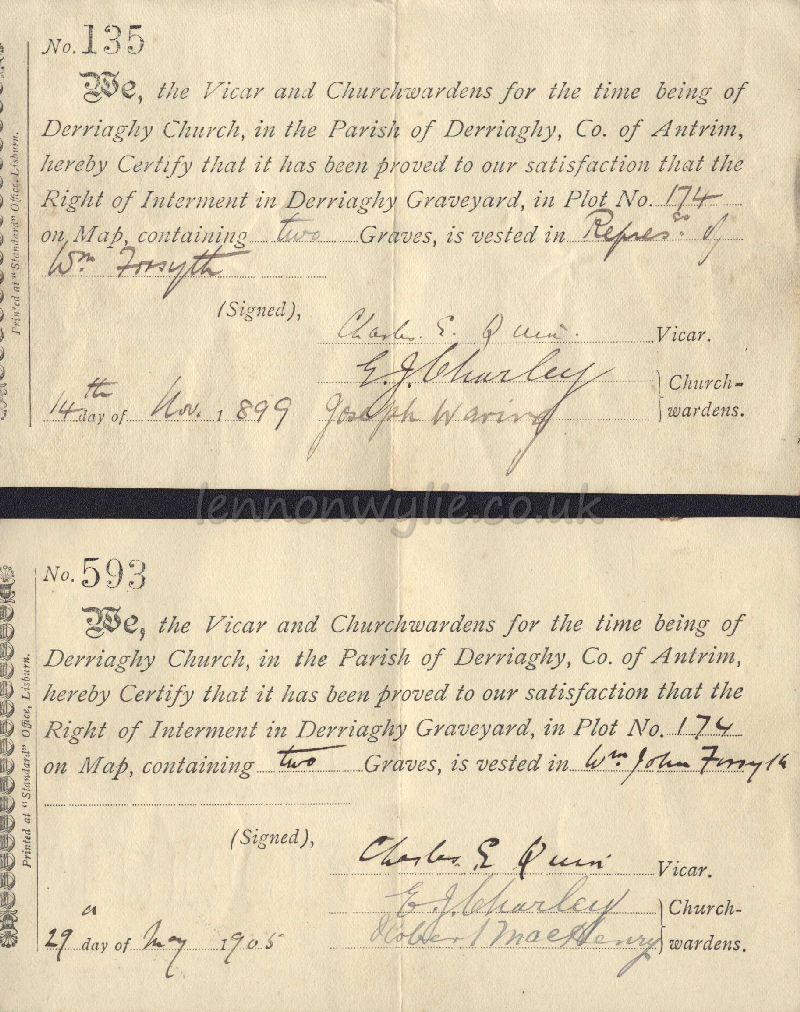 No. 135
We, the Vicar and Churchwardens for the time being of
Derriaghy Church, in the Parish of Derriaghy, Co. of Antrim,
hereby Certify that it has been proved to our satisfaction that the
Right of Interment in Derriaghy Graveyard, in Plot No. 174
on Map, containing two Graves, is vested in Represes. of
Wm Forsyth
(Signed),
Charles E. Quin. Vicar.
E. J. Charley
Church-
14th day of Nov. 1899 Joseph Waring wardens.
Printed at "Standard" Office, Lisburn.
lennonwylie.co.uk
No. 593
We, the Vicar and Churchwardens for the time being of
Derriaghy Church, in the Parish of Derriaghy, Co. of Antrim,
hereby Certify that it has been proved to our satisfaction that the
Right of Interment in Derriaghy Graveyard, in Plot No. 174
on Map, containing two Graves, is vested in Wm John Forsyth
(Signed),
Charles E Quin Vicar.
E. J. Charley Church-
29 day of May 1905 Robert MacHenry wardens.
Printed at "Standard" Office, Lisburn.